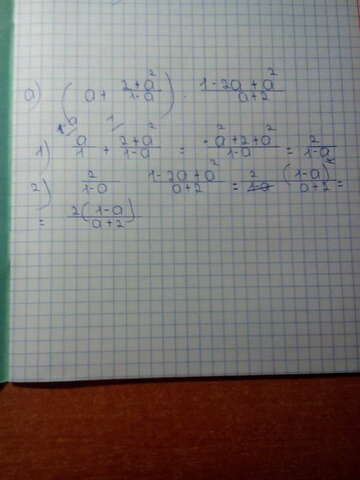 а) (a + (2+a²)/(1-a)) · (1-2a+a²)/(a+2)
1) a/1 + (2+a²)/(1-a) = (-a²+2+a²)/(1-a) = 2/(1-a)
2) 2/(1-a) (1-2a+a²)/(a+2) = 2/(1-a) (1-a)²/(a+2) =
= 2(1-a)/(a+2)